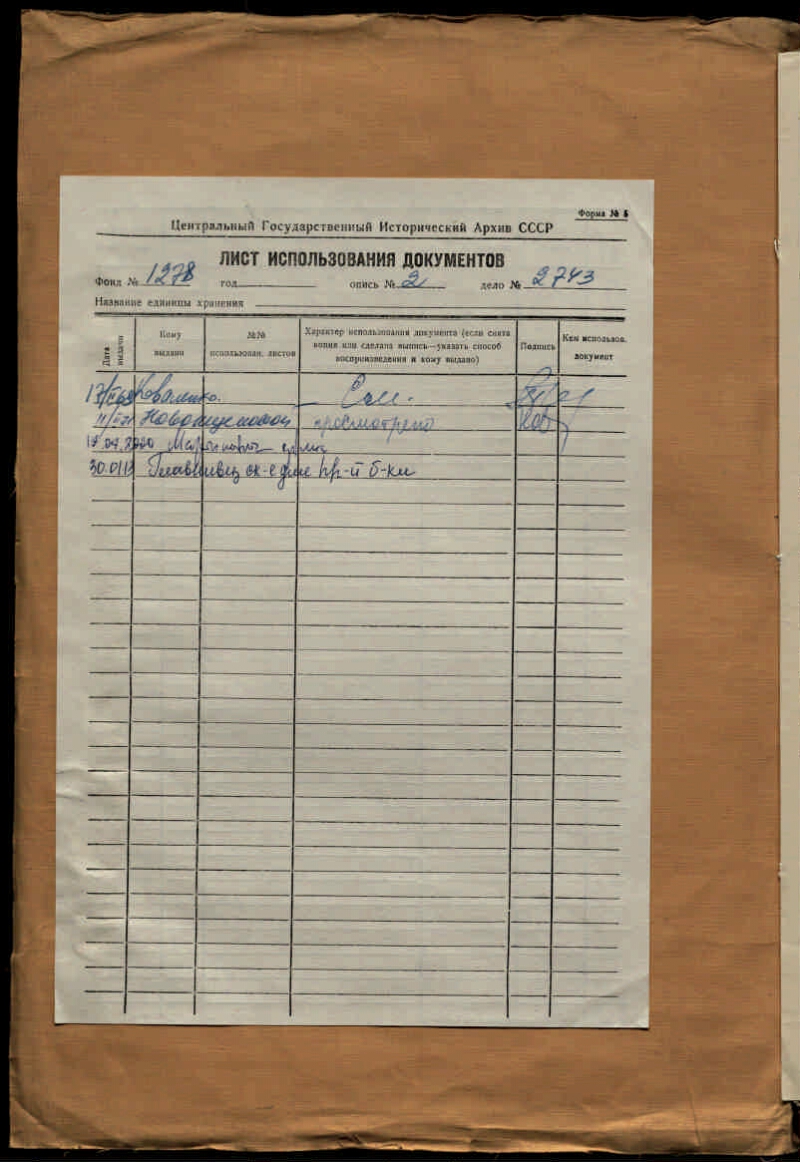 Форма № 5
Центральный Государственный Исторический Архив СССР
ЛИСТ ИСПОЛЬЗОВАНИЯ ДОКУМЕНТОВ
Фонд № 1278 год опись № 2 дело № 2743
Название единицы хранения
Дата выдачи
Кому выдано
№№ использован. листов
Характер использования документа (если снята копия или сделана выпись—указать способ воспроизведения и кому выдано)
Подпись
Кем использов. документ
Коваленко.
просмотрено Нов
30.01.13 ск-е для пр-й б-ки